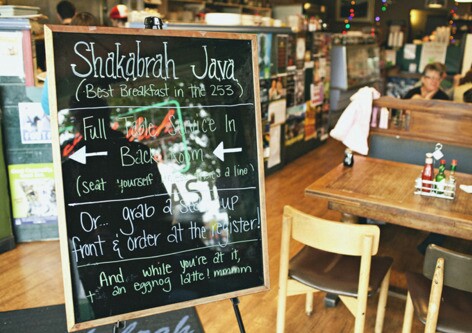 Shakabrah Java
(Best Breakfast in the 253)
Full Table Service In
Back Room
(seat yourself a line)
Or... grab a up
front & order at the register!
And, while you're at it,
an eggnog latte! mmmm